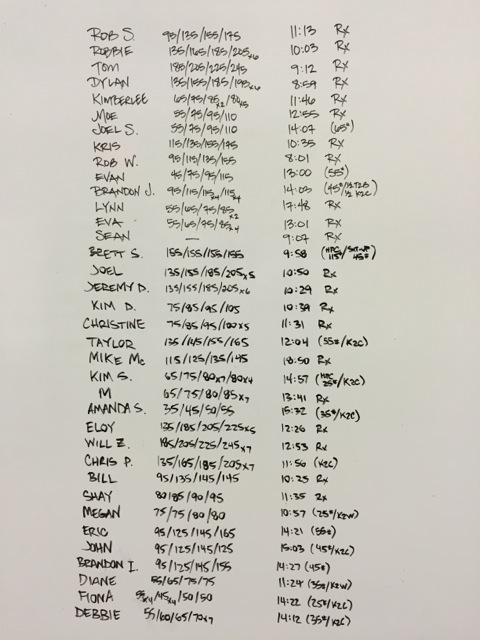 ROB S. 95/135/155/175 11:13 Rx
ROBBIE 135/165/185/205x6 10:03 Rx
TOM 185/205/225/245 9:12 Rx
DYLAN 135/155/185/195x6 8:59 Rx
KIMBERLEE 65/75/85x2/80x5 11:46 Rx
MOE 55/75/95/110 12:55 Rx
JOEL S. 55/75/95/110 14:07 (65#)
KRIS 115/135/155/175 10:35 Rx
ROB W. 95/115/135/155 8:01 Rx
EVAN 45/75/95/115 13:00 (55#)
BRANDON J. 95/115/115x4/115x4 14:03 (45#/½T2B ½ K2C)
LYNN 55/65/75/85x2 17:48 Rx
EVA 55/65/75/85x4 13:01 Rx
SEAN — 9:07 Rx
BRETT S. 155/155/155/155 9:58 (HPC 115#/SIT-UP 45#)
JOEL 135/155/185/205x5 10:50 Rx
JEREMY D. 135/155/185/205x6 10:29 Rx
KIM D. 75/85/95/105 10:39 Rx
CHRISTINE 75/85/95/100x5 11:31 Rx
TAYLOR 135/145/155/165 12:04 (55#/K2C)
MIKE Mc 115/125/135/145 18:50 Rx
KIM S. 65/75/80x7/80x4 14:57 (HPC 35#/K2C)
M 65/75/80/85x7 13:41 Rx
AMANDA S. 35/45/50/55 15:32 (35#/K2C)
ELOY 135/185/205/225x5 12:26 Rx
WILL Z. 185/205/225/245x7 12:53 Rx
CHRIS P. 135/165/185/205x7 11:56 (K2C)
BILL 95/135/145/145 10:25 Rx
SHAY 80/85/90/95 11:35 Rx
MEGAN 75/75/80/80 10:57 (25#/K2W)
ERIC 95/125/145/165 14:21 (55#)
JOHN 95/125/145/125 15:03 (45#/K2C)
BRANDON I. 95/125/145/155 14:27 (45#)
DIANE 55/65/75/75 11:24 (35#/K2W)
FIONA 55x4/45x4/50/50 14:22 (25#/K2C)
DEBBIE 55/60/65/70x7 14:12 (35#/K2C)